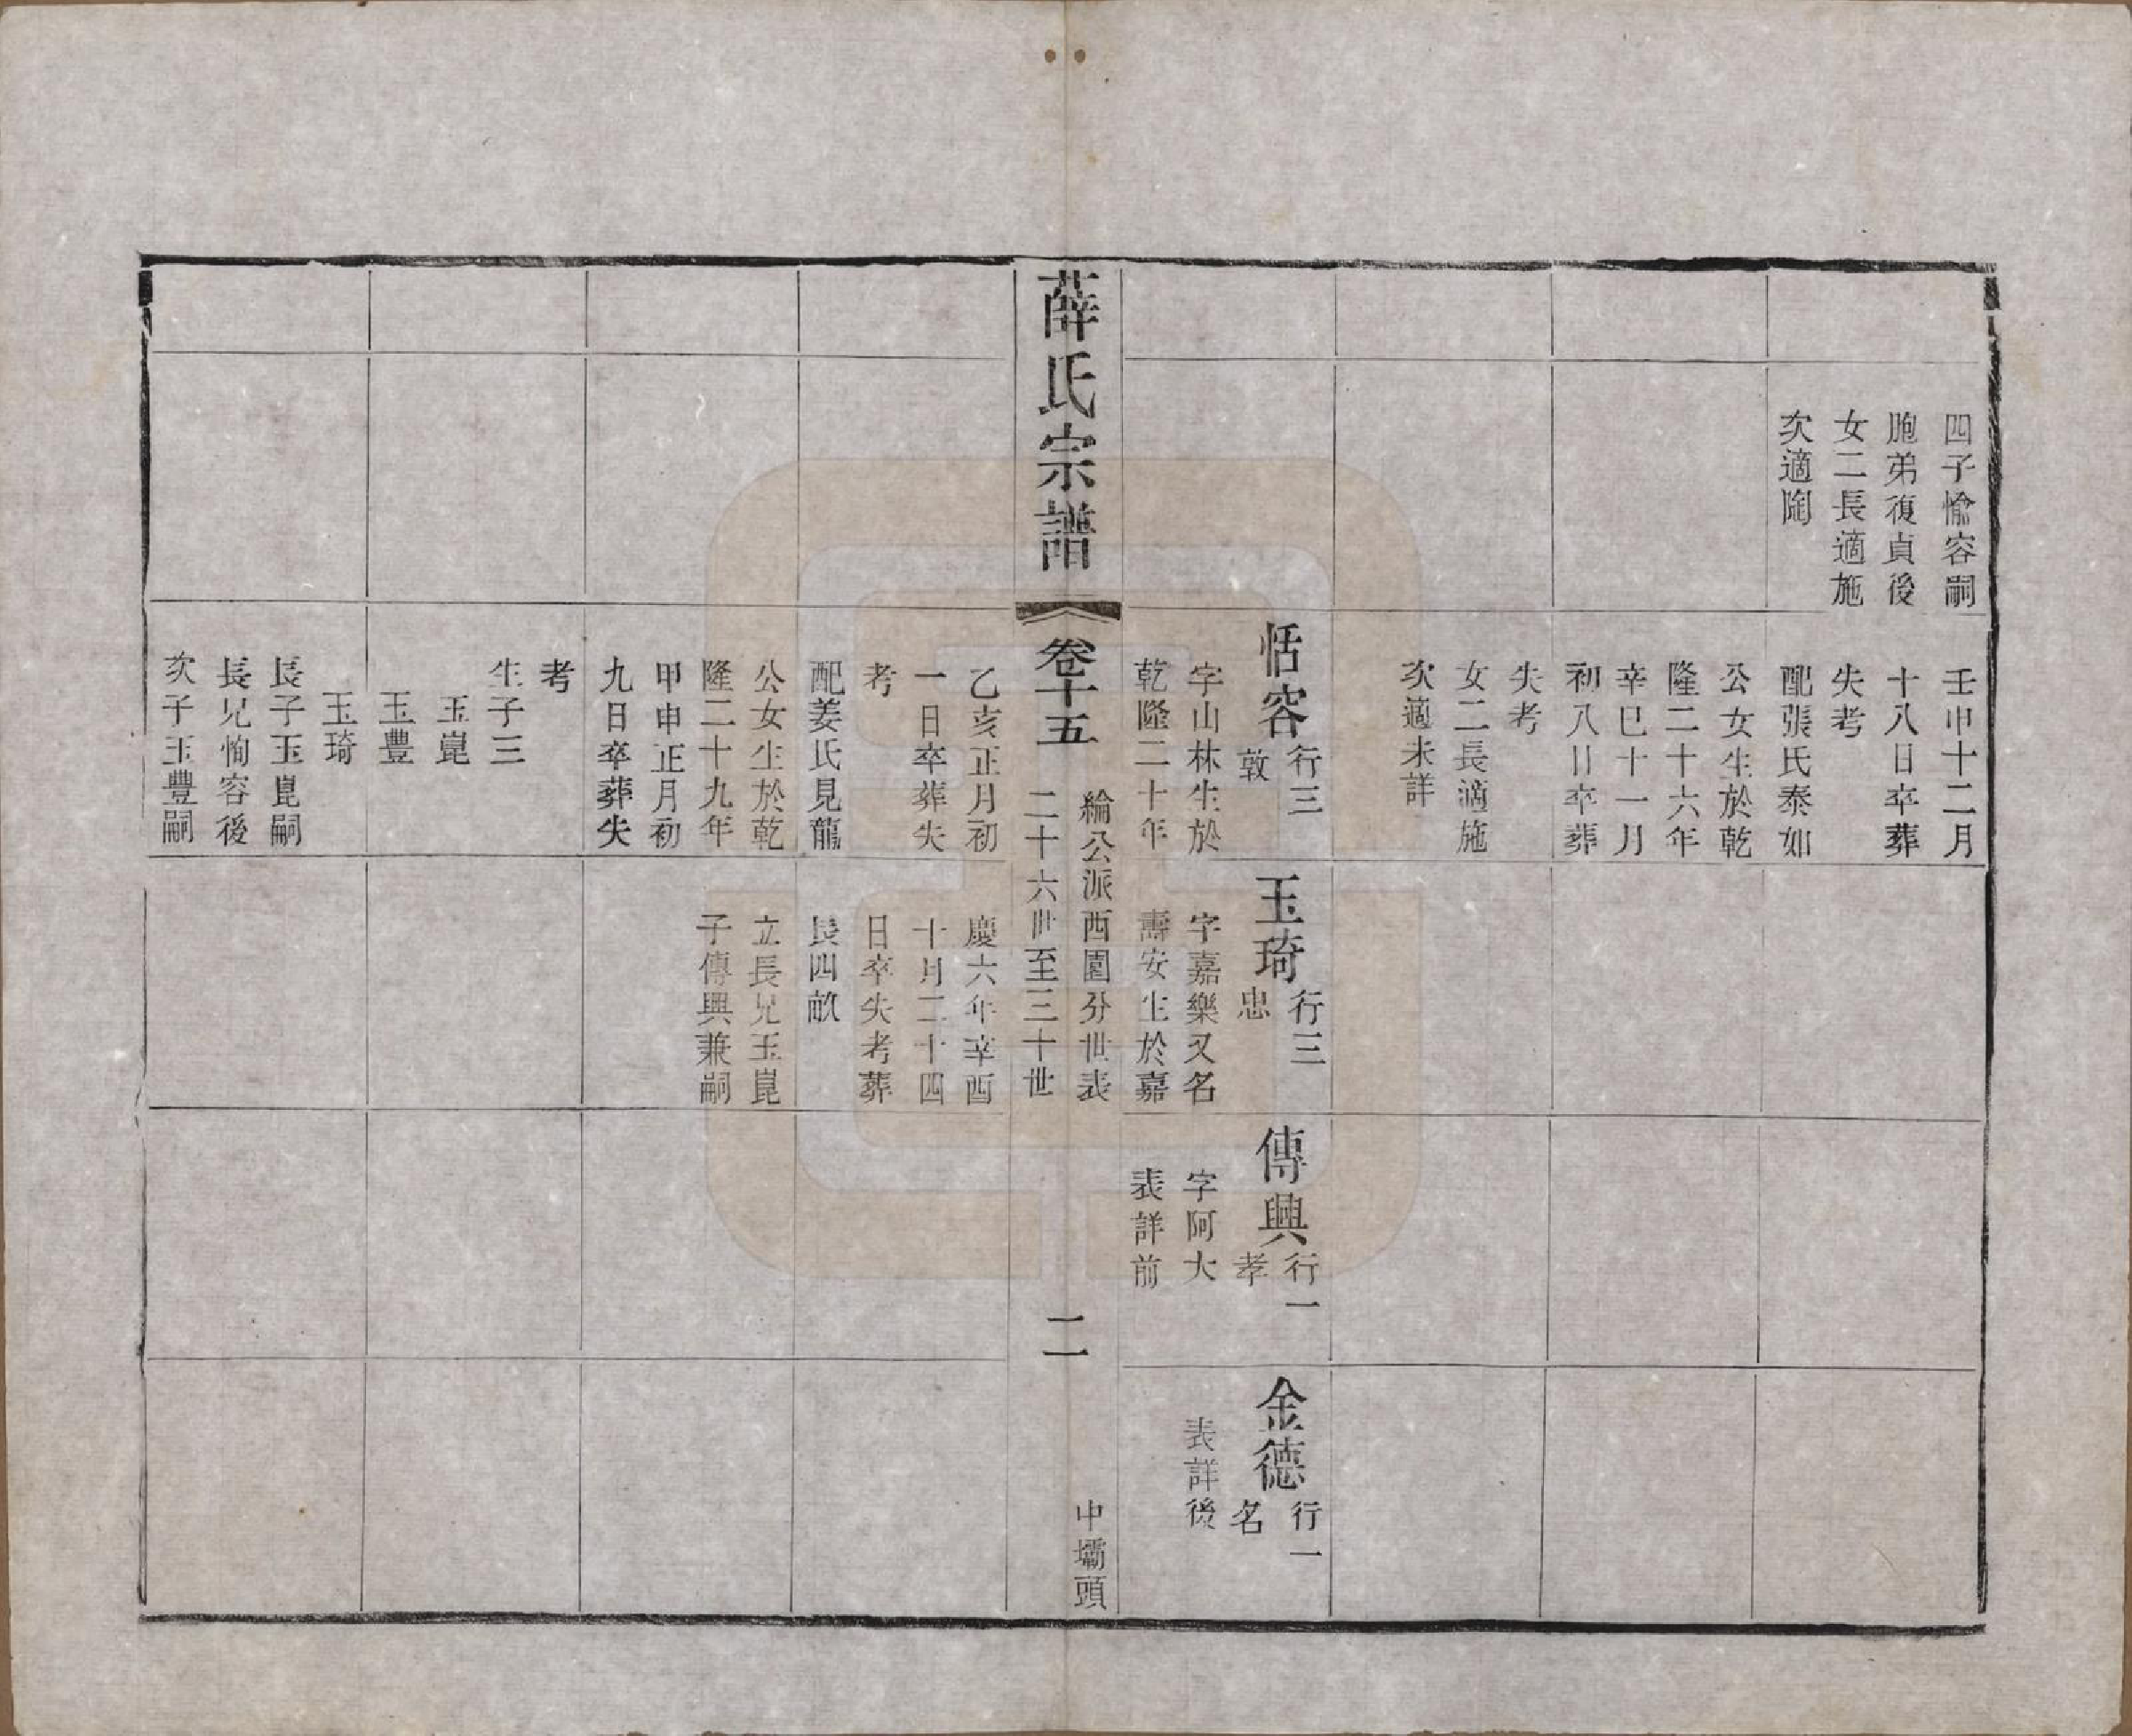 四子愉容嗣
胞弟復貞後
女二長適施
次適陶
壬申十二月
十八日卒葬
失考
配張氏泰如
公女生於乾
隆二十六年
辛巳十一月
初八日卒葬
失考
女二長適施
次適未詳
恬容
行三
敦
字山林生於
乾隆二十年
玉琦
行三
忠
字嘉樂又名
壽安生於嘉
傳興
行一
孝
字阿大
表詳前
金德
行一
名
表詳後
薛氏宗譜
卷十五
綸公派西園分世表
二十六世至三十世
二
中壩頭
乙亥正月初
一日卒葬失
考
配姜氏見龍
公女生於乾
隆二十九年
甲申正月初
九日卒葬失
考
生子三
玉崑
玉豐
玉琦
長子玉崑嗣
長兄恂容後
次子玉豐嗣
慶六年辛酉
十月二十四
日卒失考葬
長四畝
立長兄玉崑
子傳興兼嗣